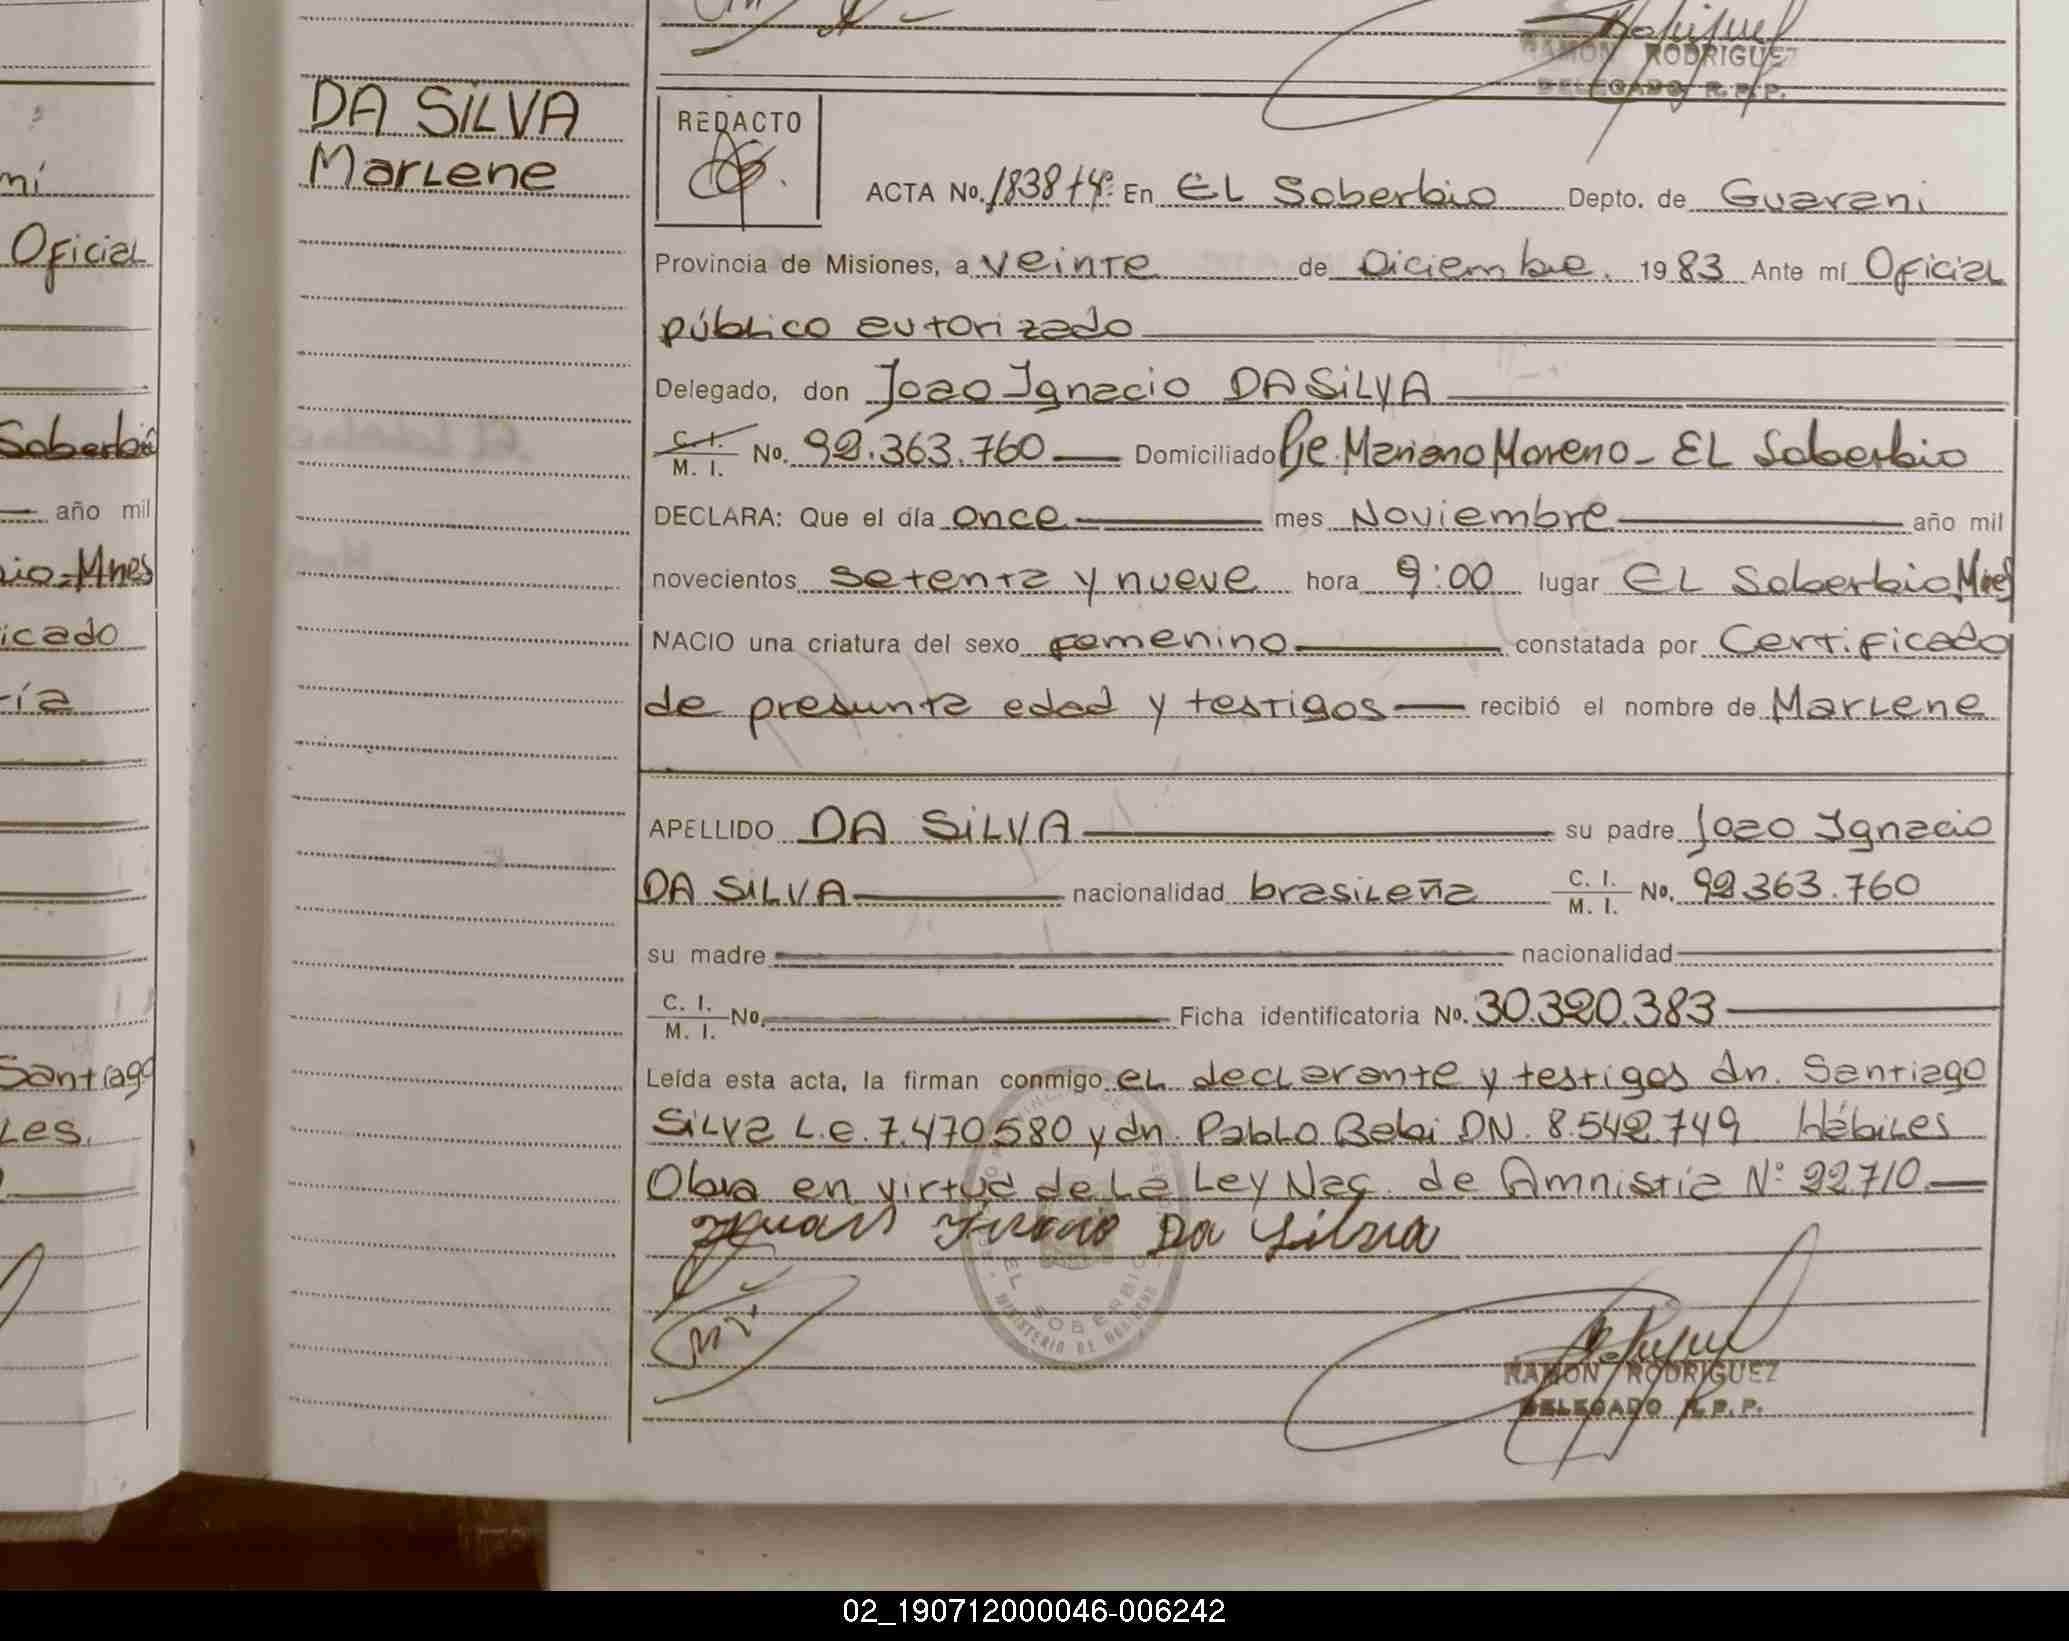 RAMON RODRIGUEZ
DELEGADO R.P.P.
DA SILVA
Marlene
mí
Oficial
Soberbio
año mil
io-Mnes
icado
ía
Santiago
Les.
REDACTO
ACTA No. 1838 tº 4º En El Soberbio Depto. de Guarani
Provincia de Misiones, a veinte de Diciembre. 1983 Ante mí Oficial
público autorizado
Delegado, don Joao Ignacio DA SILVA
C. I. / M. I. No. 92.363.760 Domiciliado Pje. Mariano Moreno - EL Soberbio
DECLARA: Que el día once mes Noviembre año mil
novecientos setenta y nueve hora 9:00 lugar EL Soberbio Mnes
NACIO una criatura del sexo femenino constatada por Certificado
de presunta edad y testigos recibió el nombre de Marlene
APELLIDO DA SILVA su padre Joao Ignacio
DA SILVA nacionalidad brasileña C. I. / M. I. No. 92.363.760
su madre nacionalidad
C. I. / M. I. No. Ficha identificatoria No. 30.320.383
Leída esta acta, la firman conmigo el declarante y testigos dn. Santiago
Silva L.e. 7.470.580 y dn. Pablo Bebi DN. 8.542.749 hábiles
Obra en virtud de la Ley Nac. de Amnistía Nº 22710
Da Silva
EL SOBERBIO
MINISTERIO DE GOBIERNO
RAMON RODRIGUEZ
DELEGADO R.P.P.
02_190712000046-006242